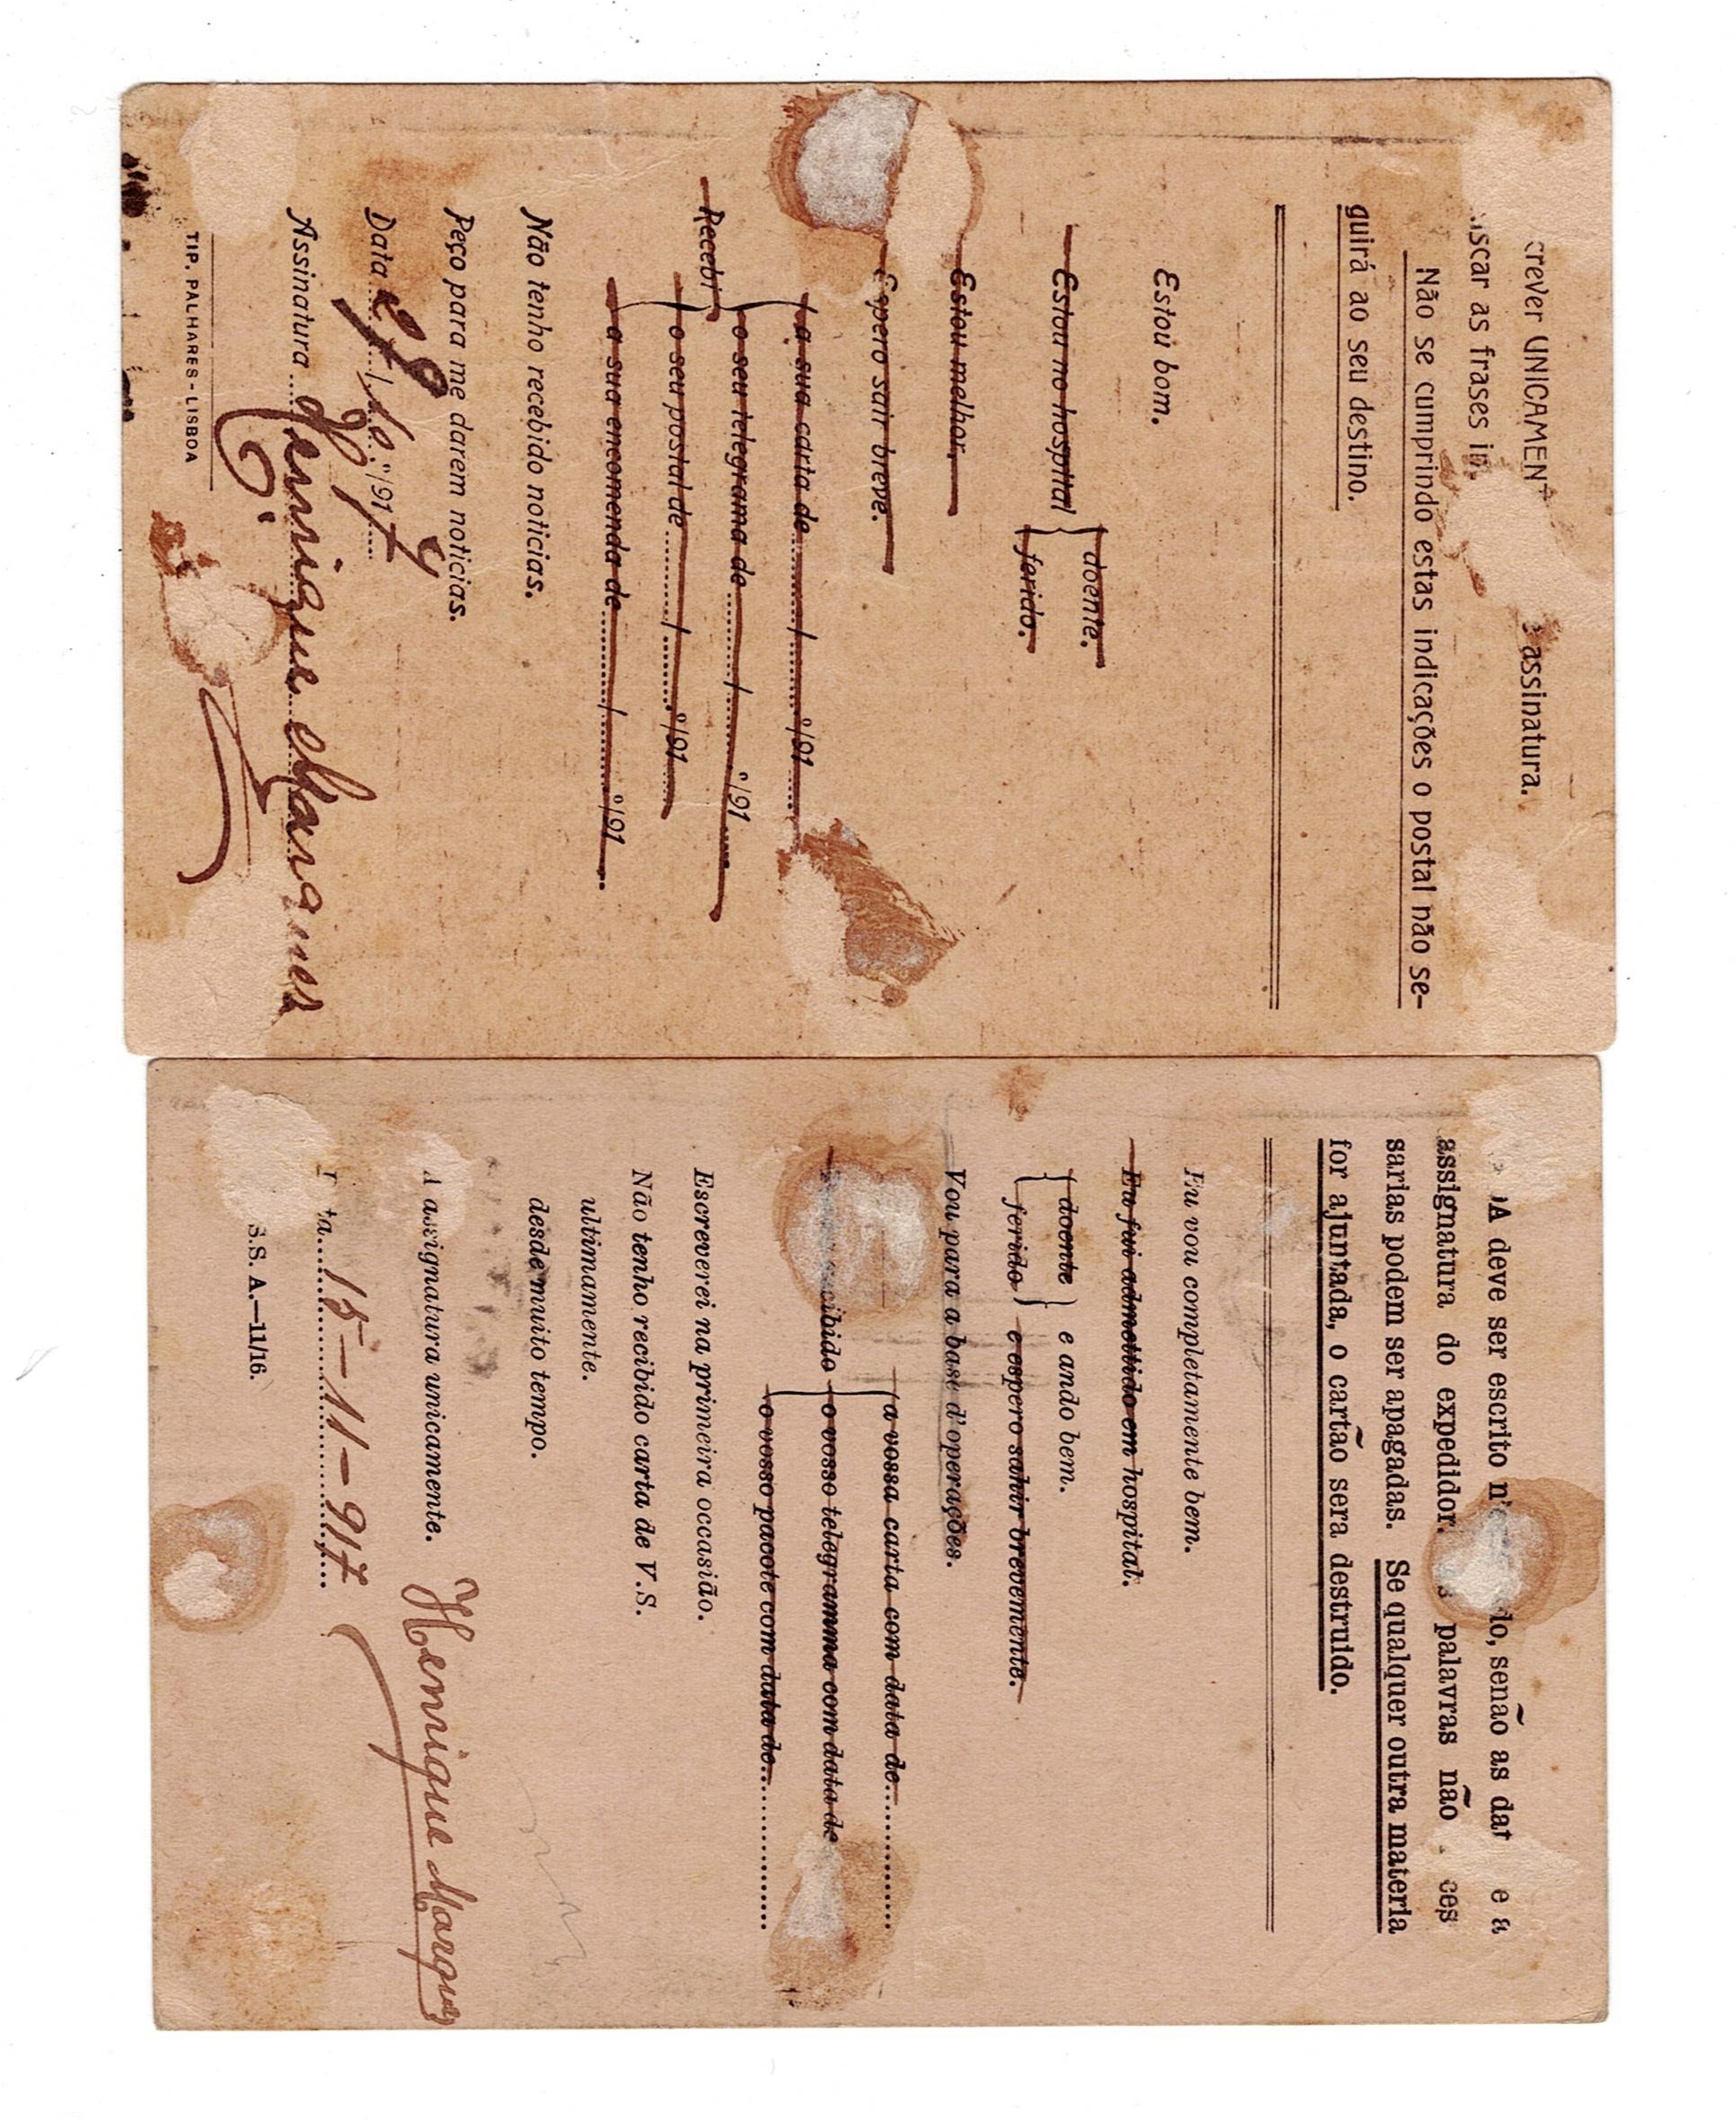 crever UNICAMEN assinatura.
iscar as frases in
Não se cumprindo estas indicações o postal não se-
guirá ao seu destino.
Estou bom.
Estou no hospital { doente.
ferido.
Estou melhor.
Espero sair breve.
Recebi { a sua carta de ......../........º/91....
o seu telegrama de ......../........º/91....
o seu postal de ......../........º/91....
a sua encomenda de ......../........º/91....
Não tenho recebido noticias.
Peço para me darem noticias.
Data /10.º/917
Assinatura Henrique Marques
TIP. PALHARES-LISBOA
A deve ser escrito n' do, senão as dat e a
assignatura do expedidor. palavras não ces
sarias podem ser apagadas. Se qualquer outra materia
for ajuntada, o cartão sera destruido.
Eu vou completamente bem.
Eu fui admettido em hospital.
{ doente } e ando bem.
{ ferido } e espero sahir brevemente.
Vou para a base d'operações.
cibido { a vossa carta com data de............
o vosso telegramma com data de
o vosso pacote com data de............
Escreverei na primeira occasião.
Não tenho recibido carta de V.S.
ultimamente.
desde muito tempo.
assignatura unicamente. Henrique Marques
ta 15-11-917
S.S. A.—11/16.